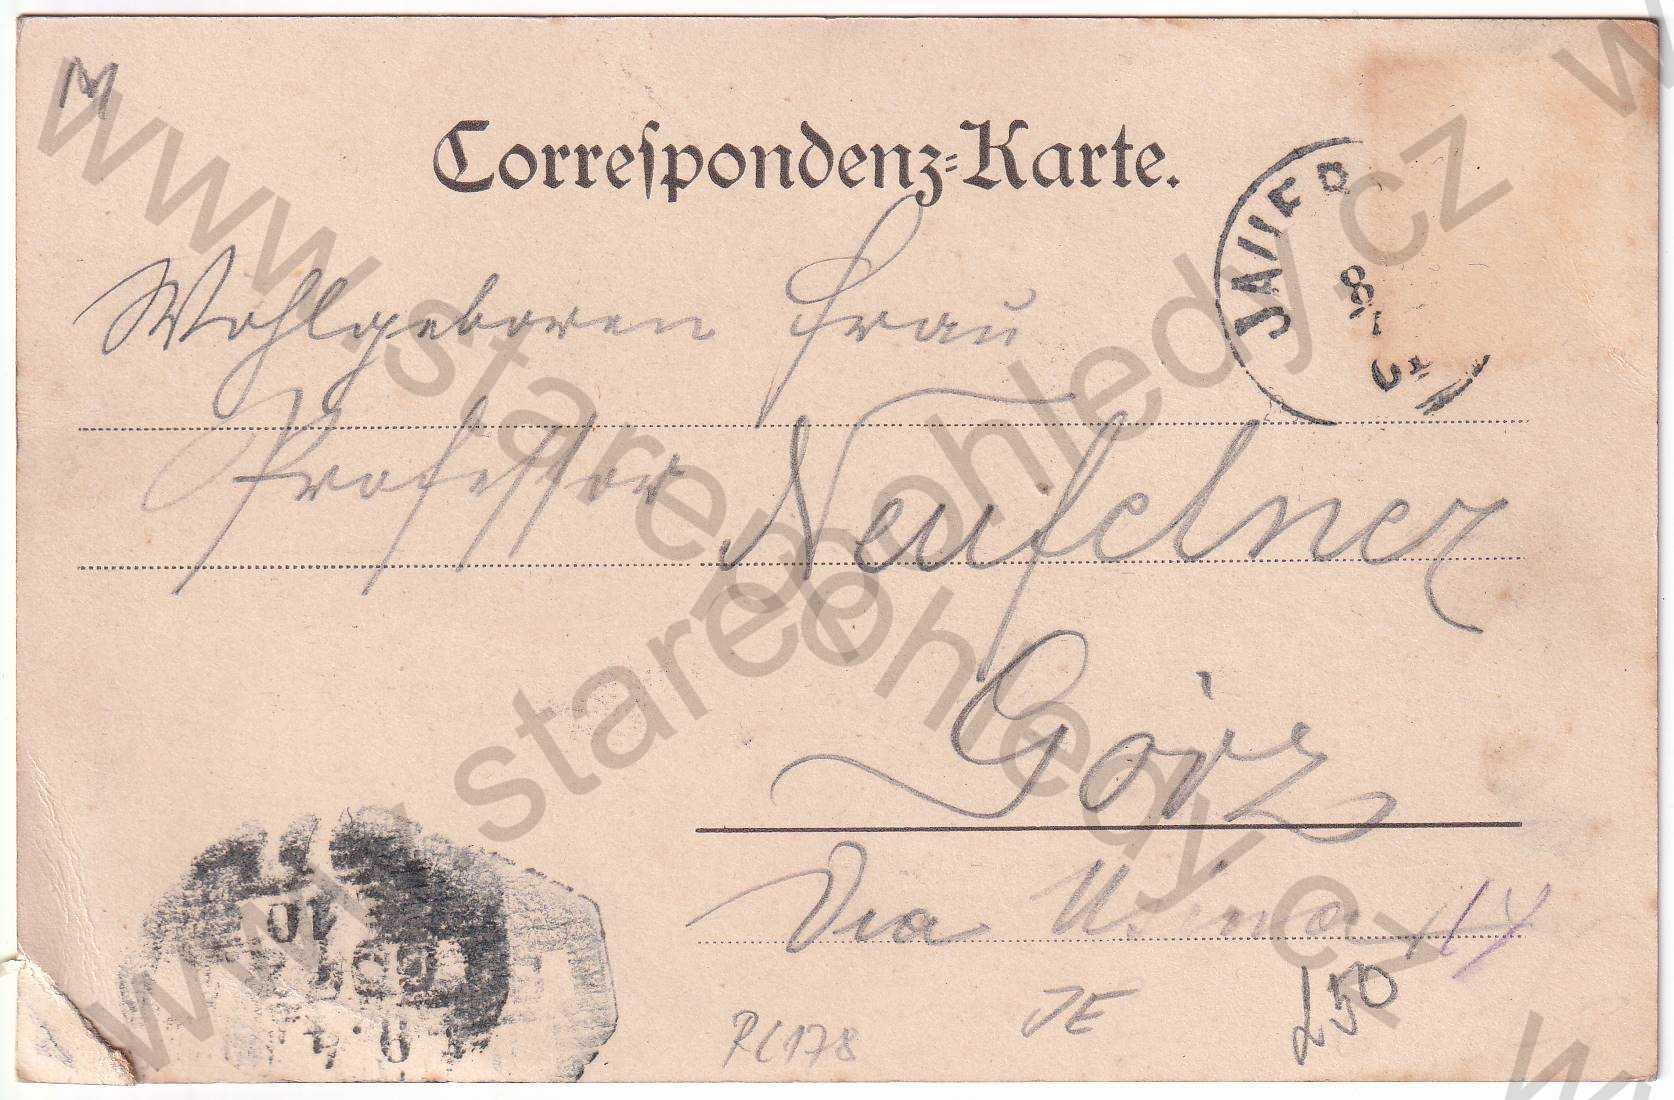 M
Correſpondenz-Karte.
JAUER
Wohlgeboren Frau
Professor Neufelner
Görz
Via
JE
250
www.starepohledy.cz
www.starepohledy.cz